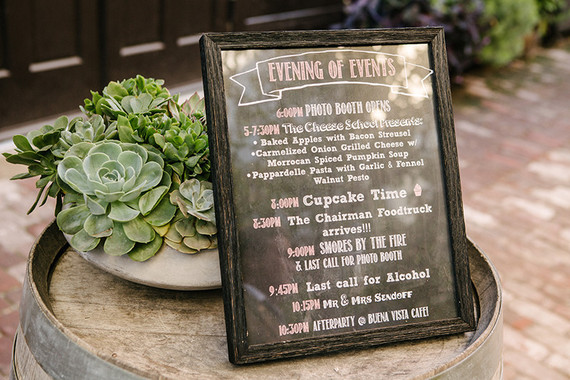 EVENING OF EVENTS
6:00PM PHOTO BOOTH OPENS
5-7:30PM The Cheese School Presents:
• Baked Apples with Bacon Streusel
• Carmolized Onion Grilled Cheese w/
Morrocan Spiced Pumpkin Soup
• Pappardelle Pasta with Garlic & Fennel
Walnut Pesto
8:00PM Cupcake Time
8:30PM The Chairman Foodtruck
arrives!!!
9:00PM SMORES BY THE FIRE
& LAST CALL FOR PHOTO BOOTH
9:45PM Last call for Alcohol
10:15PM Mr & Mrs Sendoff
10:30PM AFTERPARTY @ BUENA VISTA CAFE!